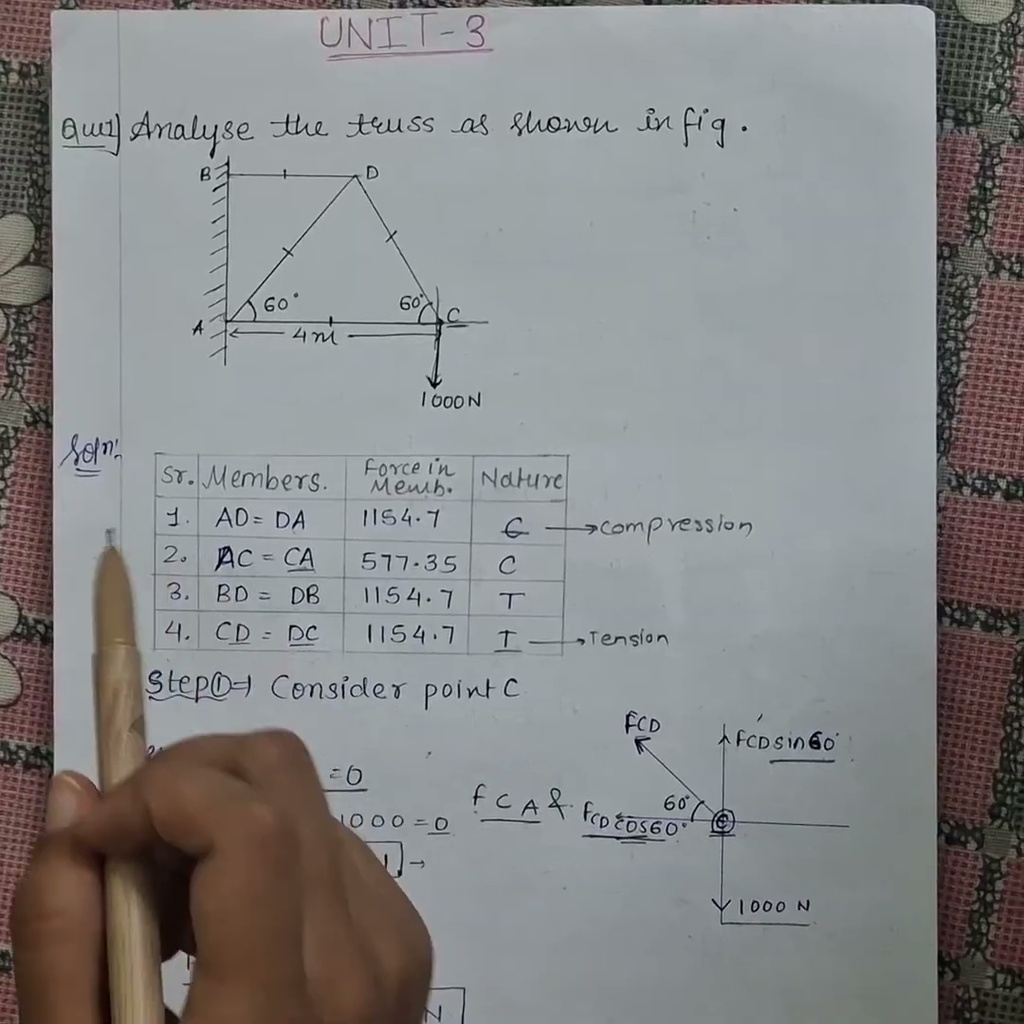 UNIT-3
Que1] Analyse the truss as shown in fig.
B
D
60°
60°
A
C
4m
1000N
Soln:
Sr. Members. Force in Memb. Nature
1. AD = DA 1154.7 C → compression
2. AC = CA 577.35 C
3. BD = DB 1154.7 T
4. CD = DC 1154.7 T → Tension
Step① → Consider point C
FCD
FCD sin60°
=0
1000 = 0
FCA & FCD cos60°
60°
C
1000 N
N